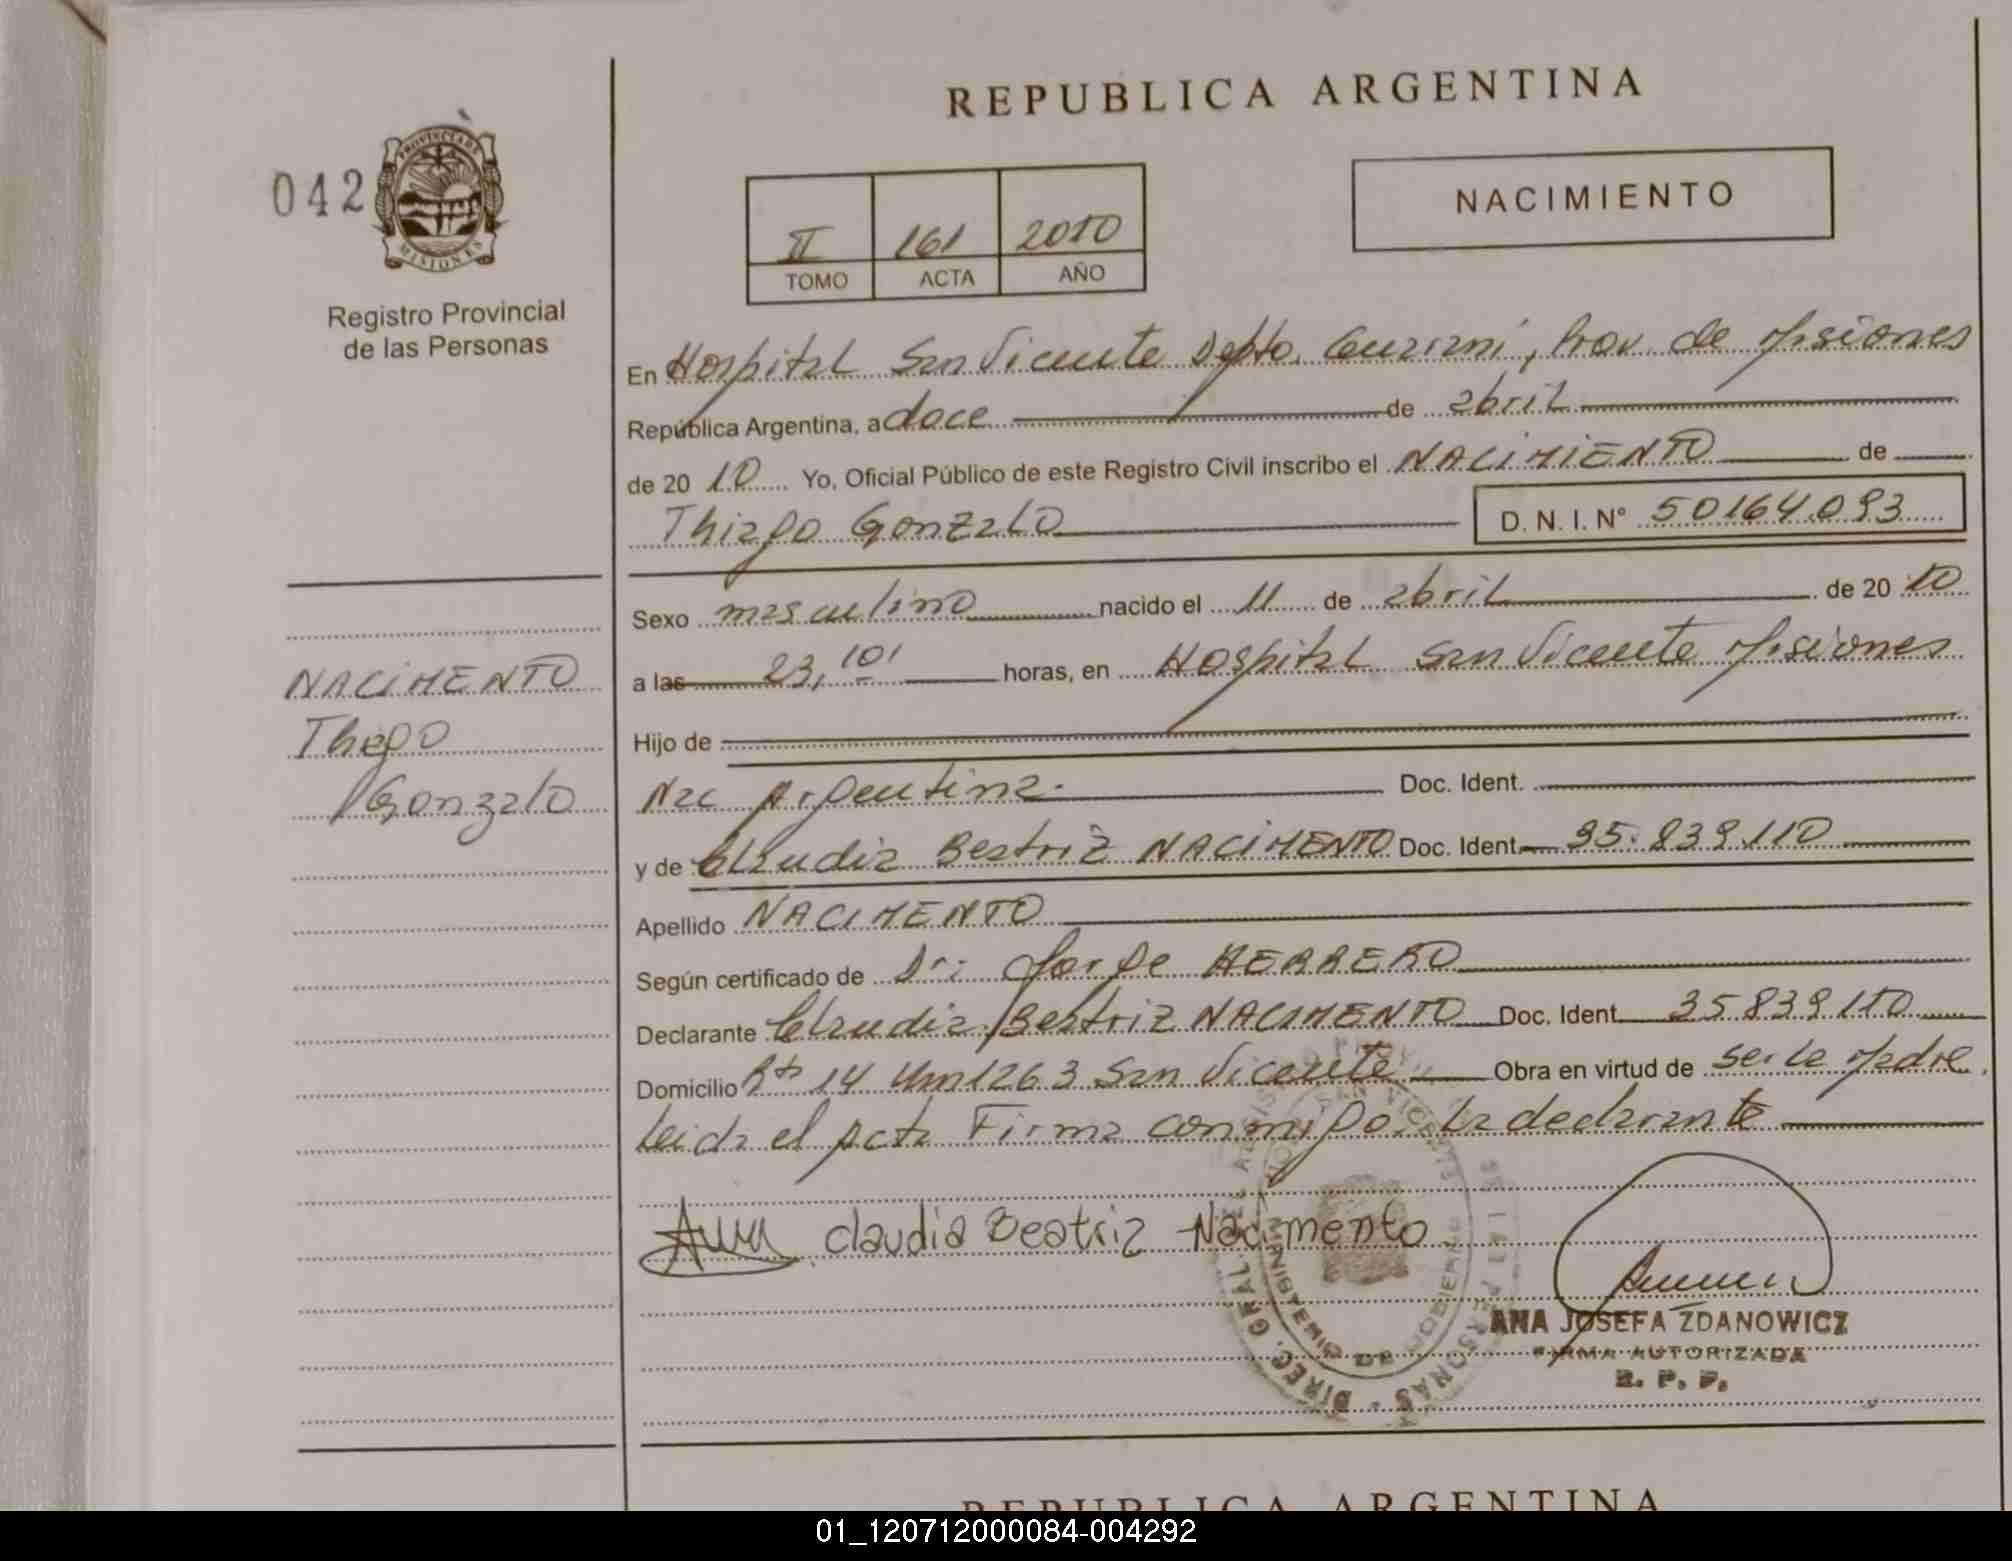 REPUBLICA ARGENTINA
042
PROVINCIA DE
MISIONES
Registro Provincial
de las Personas
NACIMIENTO
II 161 2010
TOMO ACTA AÑO
En Hospital San Vicente Depto. Guaraní, Prov. de Misiones
República Argentina, a doce de abril
de 20 10 Yo, Oficial Público de este Registro Civil inscribo el NACIMIENTO de
Thiago Gonzalo D. N. I. N° 50164.093
Sexo masculino nacido el 11 de abril de 20 10
a las 23,10' horas, en Hospital San Vicente Misiones
Hijo de
Nac Argentina. Doc. Ident.
y de Claudia Beatriz NACIMENTO Doc. Ident. 35.839.110
Apellido NACIMENTO
Según certificado de Dr: Jorge HERRERO
Declarante Claudia Beatriz NACIMENTO Doc. Ident. 35839110
Domicilio Rta 14 Km1263 San Vicente Obra en virtud de ser la Madre
Leida el Acta Firma conmigo. La declarante
NACIMENTO
Thiago
Gonzalo
Claudia Beatriz Nacimento
DIREC. GRAL. REGISTRO PROV. DE LAS PERSONAS
SAN VICENTE
MINISTERIO DE GOBIERNO
ANA JOSEFA ZDANOWICZ
FIRMA AUTORIZADA
R. P. P.
REPUBLICA ARGENTINA
01_120712000084-004292